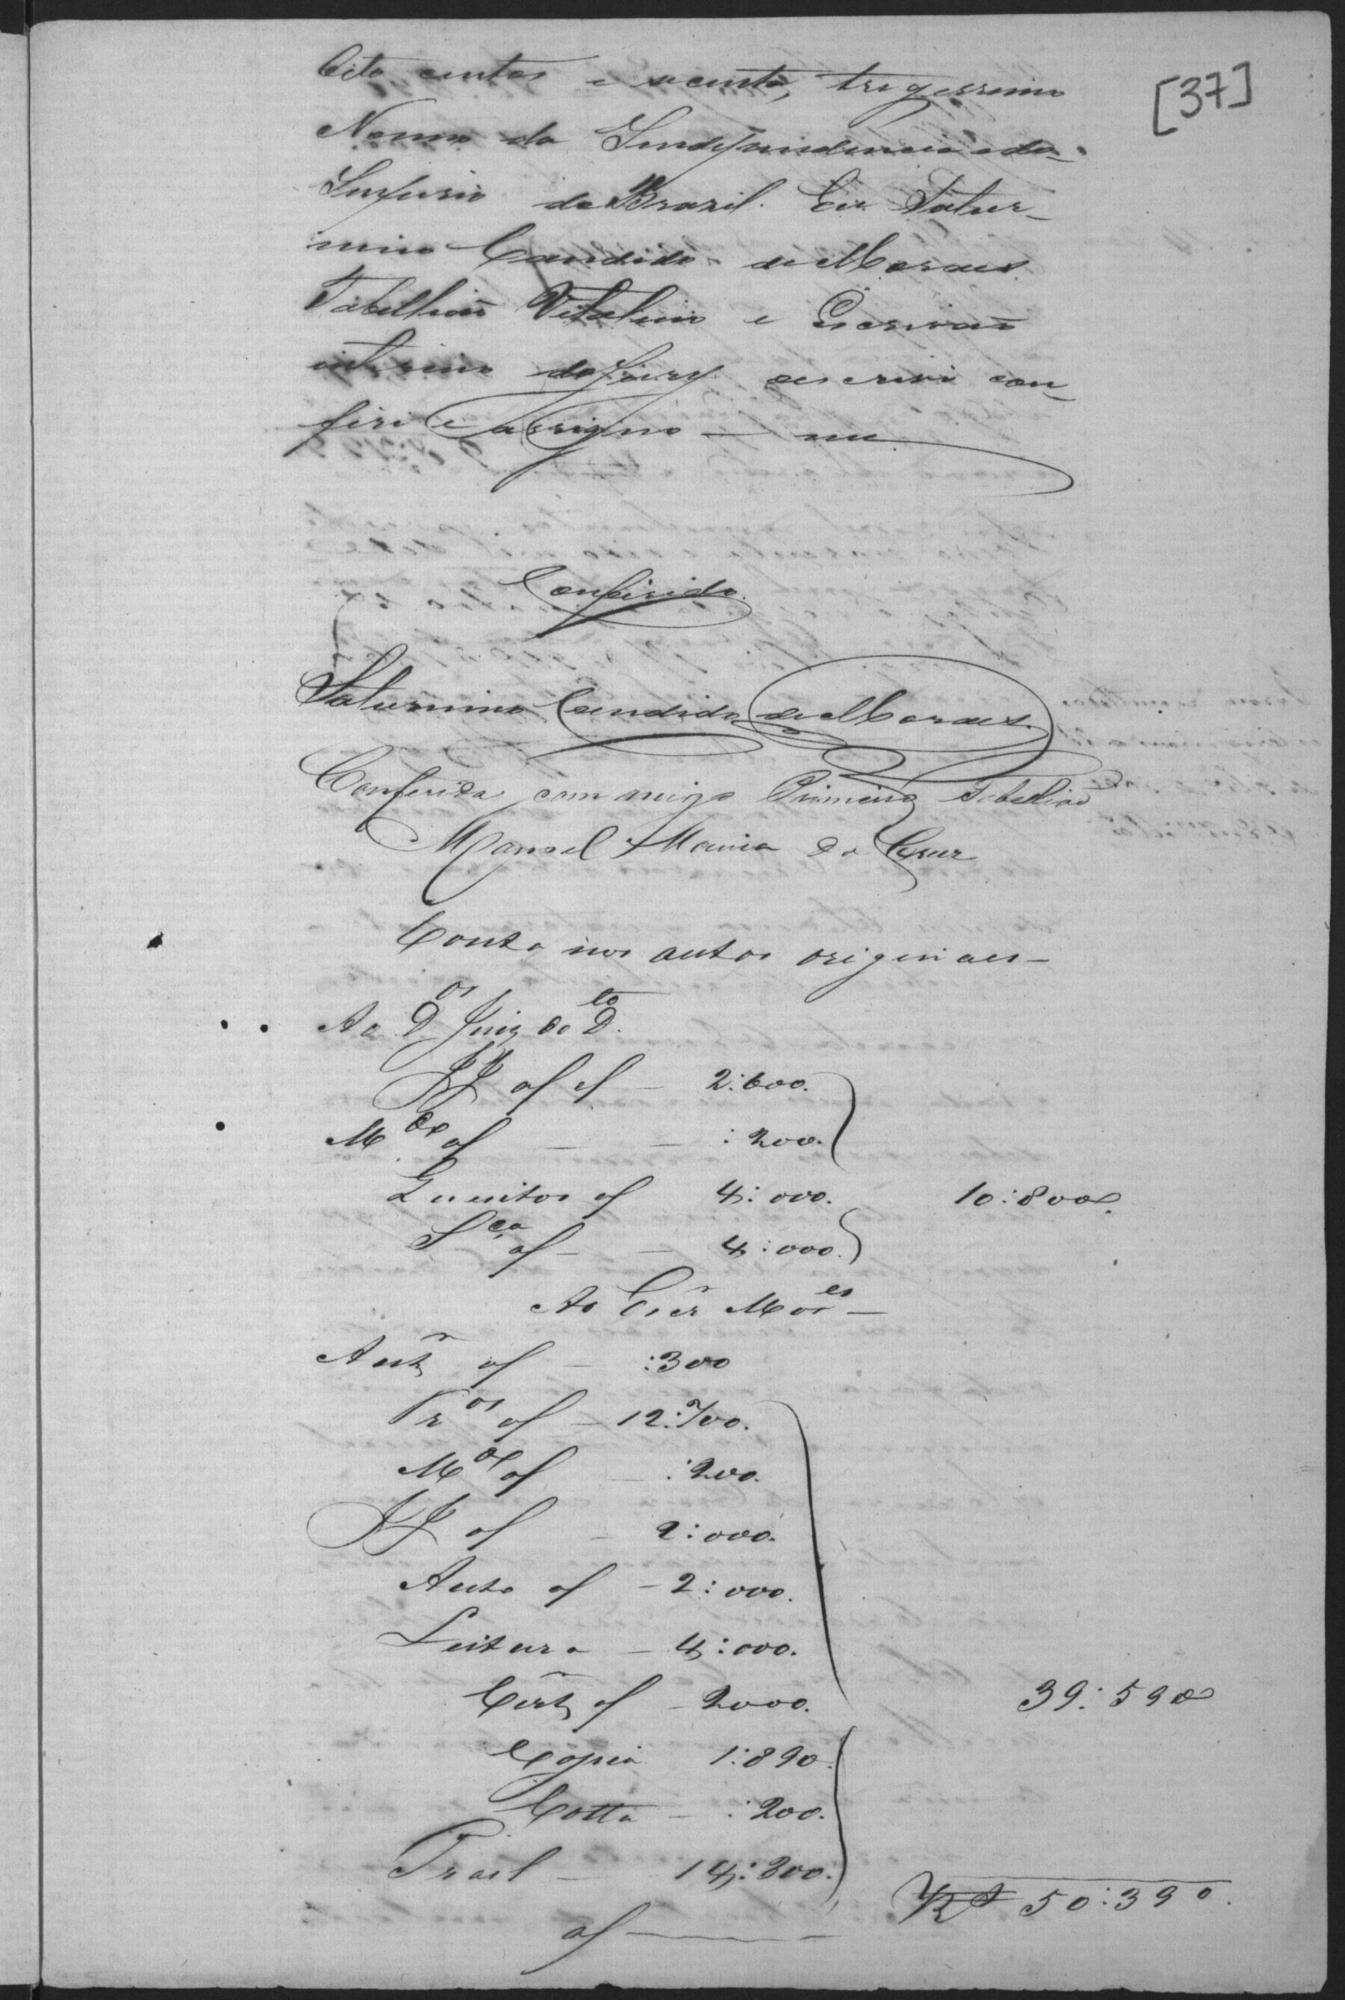 [37]
Oito centos e secenta, trigessimo
Nonno da Independencia e do
Imperio do Brazil. Eu Satur-
nino Candido de Moraes
Tabellião Vitalicio e Escrivão
interino do Jury escrevi con-
feri e assigno
Conferido.
Saturnino Candido de Moraes.
Conferida commigo Primeiro Tabelião
Manoel Maria da Cruz
Conta nos autos originaes—
Ao Dor Juiz de Dto.
JJ of — 2:600.
M.do of — — :200.
Quesitos of 4:000. 10:800
Sça of — — 4:000.
Ao Escr Moes —
Autm of — :300
Pros of — 12:700.
Mdo of — :200.
JJ of — 2:000.
Auto of — 2:000.
Leitura — 4:000.
Certm of — 2000.
Copia 1:890.
Cotta — :200.
Trasl — 14:300.
39:590
Rs 50:390.